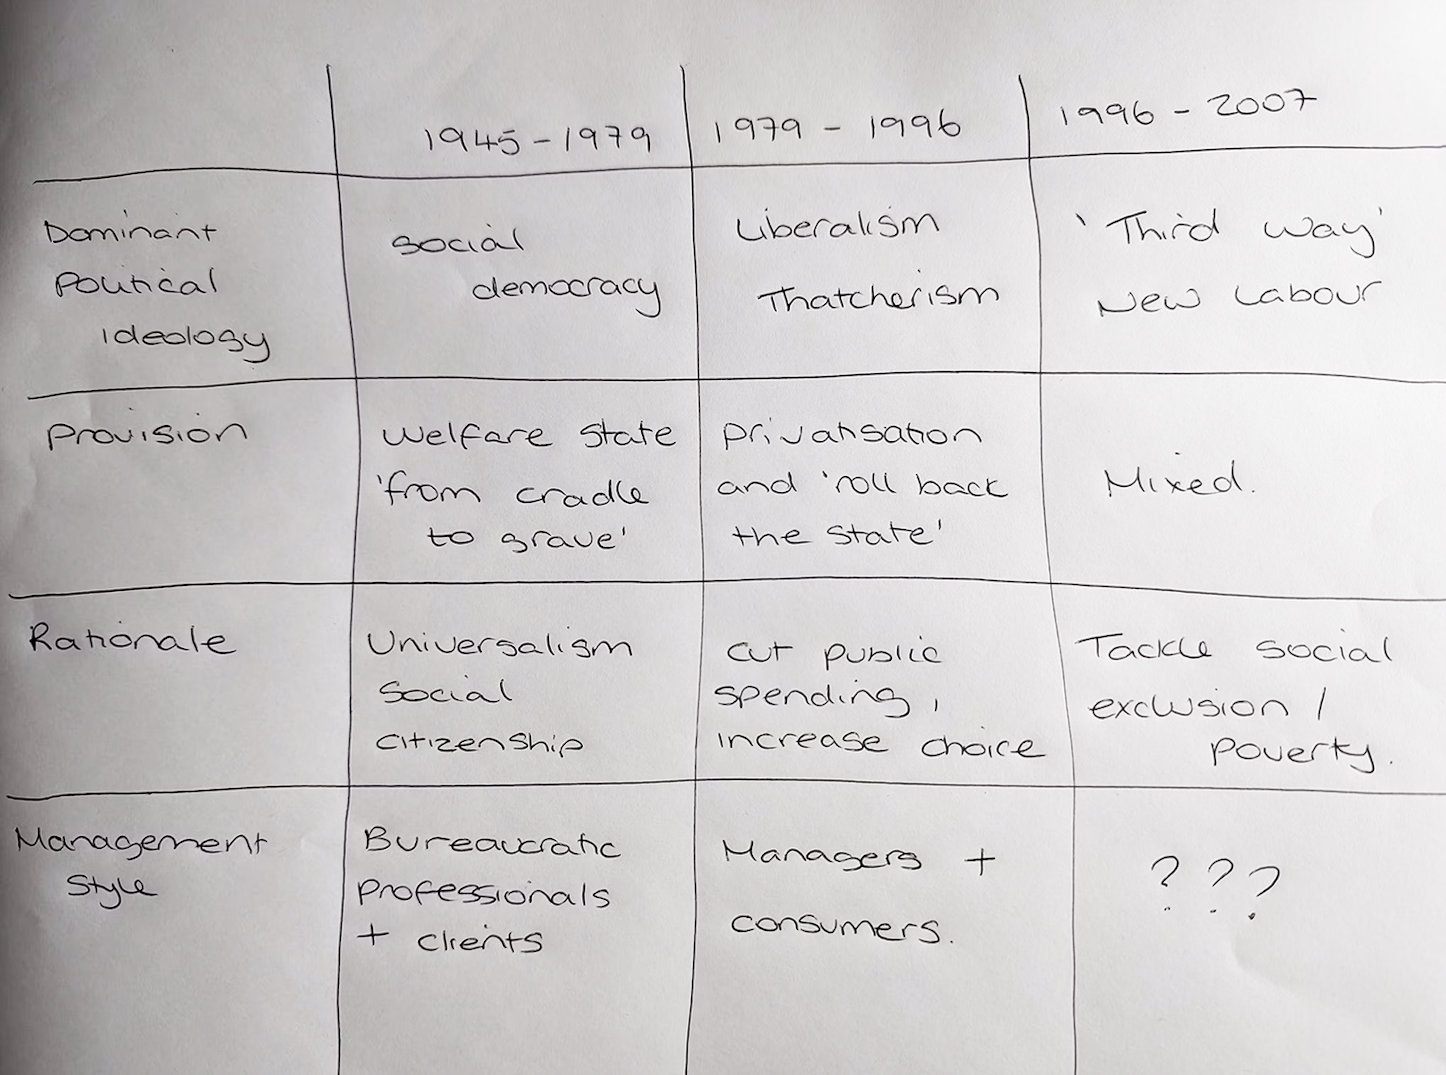 1945-1979 1979 - 1996 1996 - 2007
Dominant
Political
ideology
social
democracy
Liberalism
Thatcherism
'Third way'
New Labour
Provision
Welfare state
'from cradle
to grave'
privatisation
and 'roll back
the state'
Mixed.
Rationale
Universalism
Social
citizenship
cut public
spending,
increase choice
Tackle social
exclusion /
poverty.
Management
Style
Bureaucratic
professionals
+ clients
Managers +
consumers.
? ? ?